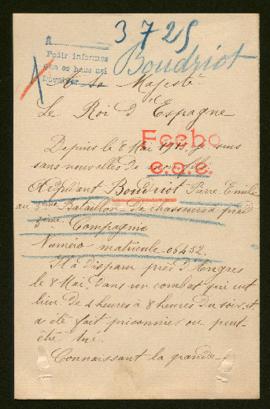 3725
Boudriot
A
Pedir informes
A Sa Majesté
Le Roi d'Espagne
Depuis le 8 Mai 1915, je suis
sans nouvelles de
Fecho
c.a.e.
Adjudant Boudriot Pierre Emile
au Bataillon de chasseurs à pied
Compagnie
Numéro matricule 06452.
Il a disparu près d'Angres
le 8 Mai dans un combat qui eut
lieu de 4 heures à 8 heures du soir, et
a été fait prisonnier ou peut
être tué.
Connaissant la grande